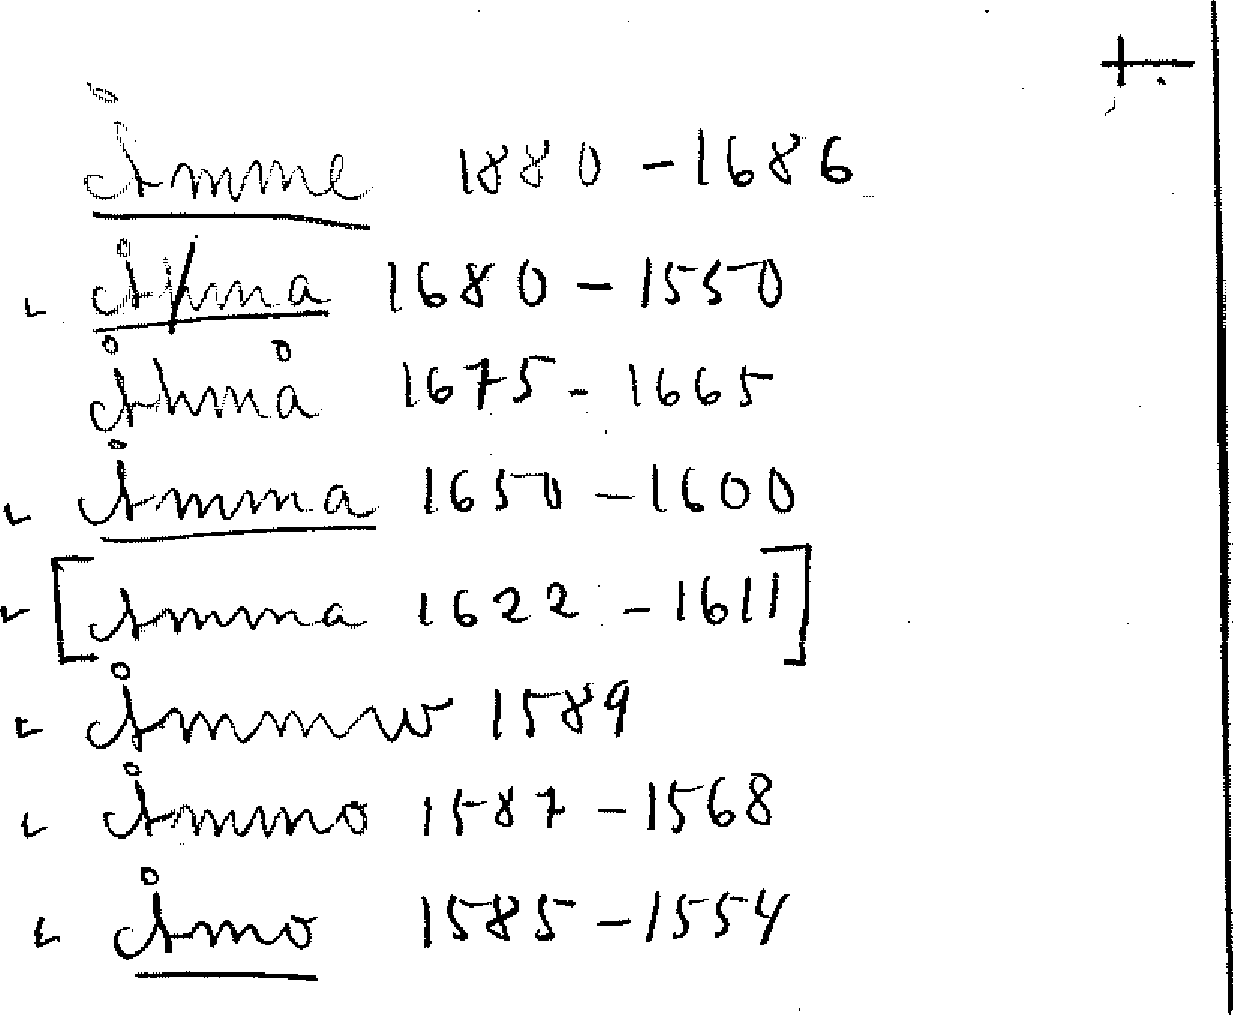 Åmme 1880 - 1686
Åhma 1680 - 1550
Åhmå 1675 - 1665
Åmma 1650 - 1600
[Amma 1622 - 1611]
Åmmw 1589
Åmmo 1587 - 1568
Åmo 1585 - 1554